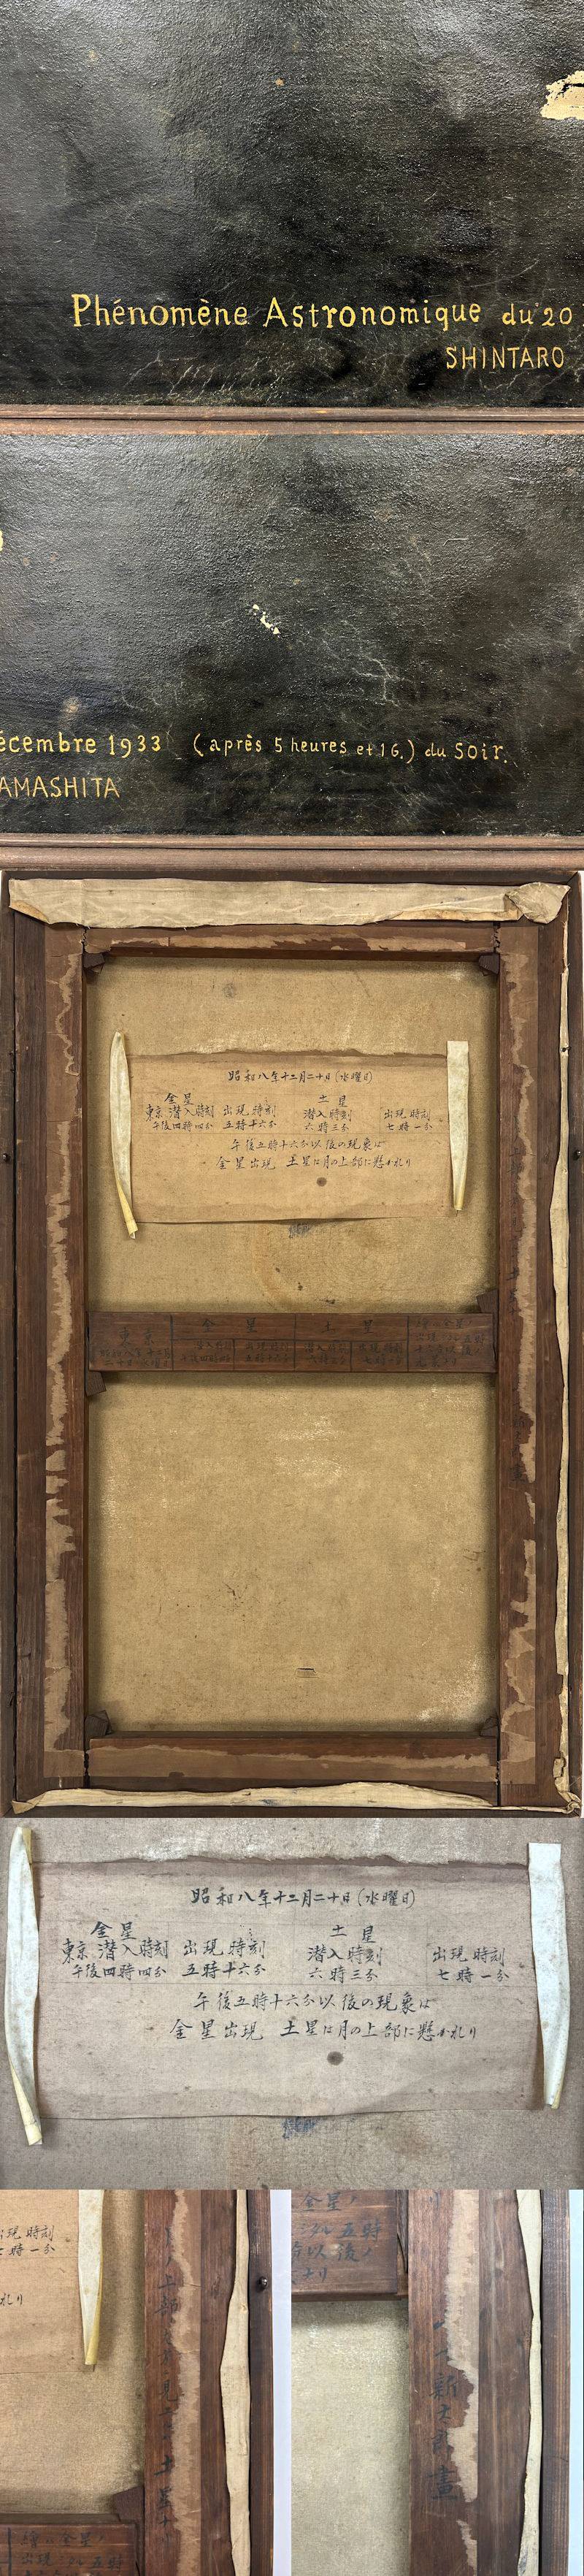 Phénomène Astronomique du 20
SHINTARO
écembre 1933 (après 5 heures et 16.) du Soir.
AMASHITA
昭和八年十二月二十日(水曜日)
金星 土星
東京 潜入時刻 出現時刻 潜入時刻 出現時刻
午後四時四分 五時十六分 六時三分 七時一分
午後五時十六分以後の現象は
金星出現 土星は月の上部に懸かれり
金星 土星
東京
昭和八年十二月二十日(水曜日)
金星 土星
東京 潜入時刻 出現時刻 潜入時刻 出現時刻
午後四時四分 五時十六分 六時三分 七時一分
午後五時十六分以後の現象は
金星出現 土星は月の上部に懸かれり
出現時刻
七時一分
れり
ノ上部
見
土星ナリ
金星ノ
五時
以後ノ
ナリ
新太郎
畫